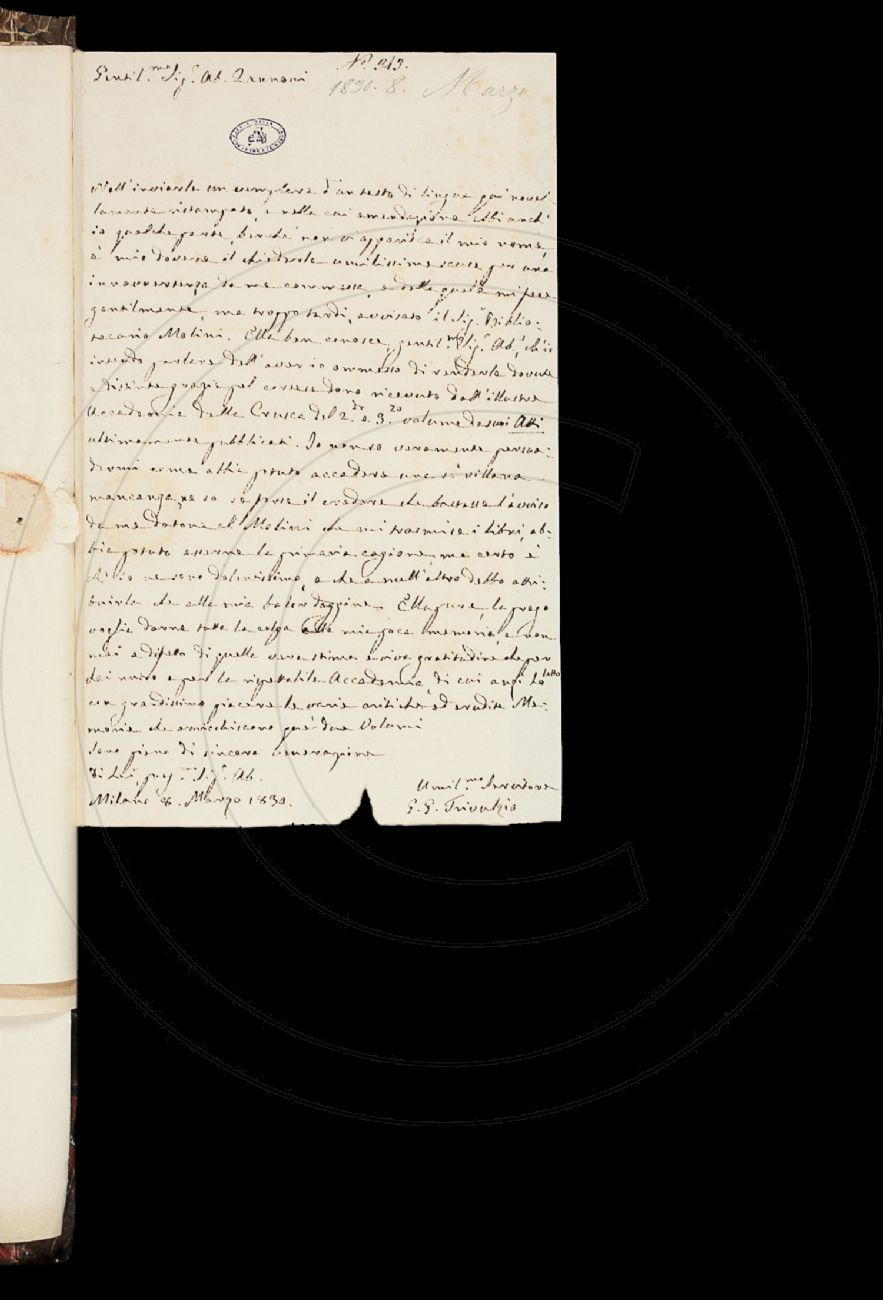 N.° 313.
Gentil.mo Sig.r Ab. Zannoni
1830. 8. Marzo
Nell'inviarle un esemplare d'un testo di lingua qui novel-
lamente ristampato, e nella cui emendazione ebbi anch'
io qualche parte, benchè non vi apparisca il mio nome,
è mio dovere il chiederle umilissime scuse per una
inavvertenza da me commessa, e della quale mi fece
gentilmente, ma troppo tardi, avvisato il Sig.r Biblio-
tecario Molini. Ella ben conosce, gentil.mo Sig.r Ab.e, ch'io
intendo parlare dell'aver io ommesso di renderle dovute
e distinte grazie pel cortese dono ricevuto dall'illustre
Accademia della Crusca del 2.do e 3.zo volume de suoi Atti
ultimamente pubblicati. Io non so veramente persua-
dermi come abbia potuto accadere una sì villana
mancanza, ne so se forse il credere che bastasse l'avviso
da me datone al Molini che mi trasmise i libri, ab-
bia potuto esserne la primaria cagione, ma certo è
ch'io ne sono dolentissimo, e che a null'altro debbo attri-
buirla che alla mia balordaggine. Ella pure, la prego
voglia darne tutta la colpa alla mia poca memoria, e non
mai a difetto di quella vera stima e viva gratitudine che per
Lei nutro e per la rispettabile Accademia, di cui anzi ho letto
con grandissimo piacere le varie critiche ed erudite Me-
morie che arricchiscono que' due Volumi
Sono pieno di sincera venerazione
Di Lei, preg.mo Sig.r Ab.
Umil.mo Servitore
Milano 8. Marzo 1830.
G. G. Trivulzio